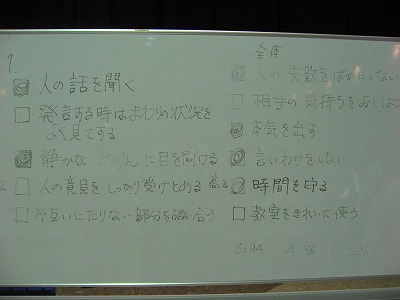 1.
人の話を聞く
発言する時はまわりの状況を
よく見てする
静かな に目を向ける
2 人の意見をしっかり受けとめる
お互いにたりない部分を補い合う
全体
人の失敗をばかにしない
相手の気持ちをおしはかる
本気を出す
言いわけをしない
時間を守る
教室をきれいに使う
6:94 4.38